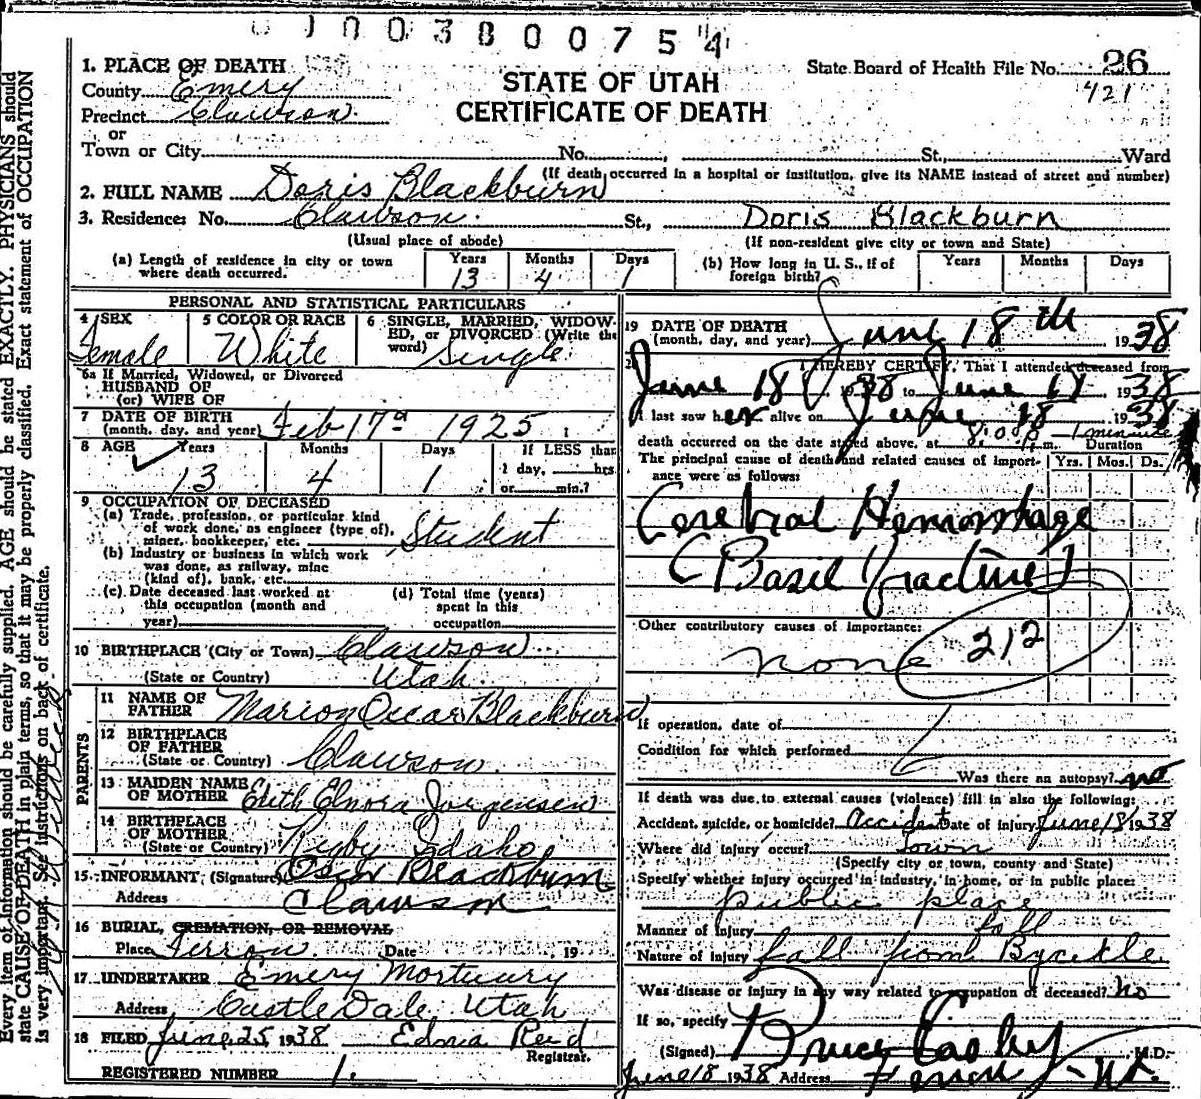 0 1 0 0 3 8 0 0 7 5 4
1. PLACE OF DEATH
County Emery
Precinct Clawson
or
Town or City No. , St., Ward
STATE OF UTAH
CERTIFICATE OF DEATH
State Board of Health File No. 26
421
(If death occurred in a hospital or institution, give its NAME instead of street and number)
2. FULL NAME Doris Blackburn
3. Residence: No. Clawson. St., Doris Blackburn
(Usual place of abode) (If non-resident give city or town and State)
(a) Length of residence in city or town where death occurred. Years 13 Months 4 Days 1
(b) How long in U. S., if of foreign birth? Years Months Days
PERSONAL AND STATISTICAL PARTICULARS
4 SEX Female
5 COLOR OR RACE White
6 SINGLE, MARRIED, WIDOWED, or DIVORCED (Write the word) Single
6a If Married, Widowed, or Divorced
HUSBAND OF
(or) WIFE OF
7 DATE OF BIRTH
(month, day, and year) Feb 17 1925
8 AGE Years 13 Months 4 Days 1 If LESS than
1 day, hrs.
or min.?
9 OCCUPATION OF DECEASED
(a) Trade, profession, or particular kind
of work done, as engineer (type of),
miner, bookkeeper, etc. Student
(b) Industry or business in which work
was done, as railway, mine
(kind of), bank, etc.
(c) Date deceased last worked at
this occupation (month and
year)
(d) Total time (years)
spent in this
occupation
10 BIRTHPLACE (City or Town) Clawson
(State or Country) Utah
PARENTS
11 NAME OF
FATHER Marion Oscar Blackburn
12 BIRTHPLACE
OF FATHER
(State or Country) Clawson
13 MAIDEN NAME
OF MOTHER Edith Elnora Jorgensen
14 BIRTHPLACE
OF MOTHER
(State or Country) Rigby Idaho
15 INFORMANT (Signature) Oscar Blackburn
Address Clawson
16 BURIAL, CREMATION, OR REMOVAL
Place Ferron Date , 19
17 UNDERTAKER Emery Mortuary
Address Castle Dale, Utah
18 FILED June 25, 1938 Edna Reid
Registrar.
REGISTERED NUMBER 1.
19 DATE OF DEATH
(month, day, and year) June 18th 1938
I HEREBY CERTIFY, That I attended deceased from
June 18 1938 to June 18 1938
I last saw her alive on June 18 1938
death occurred on the date stated above, at 8:00 p.m. 1 minute
Duration
The principal cause of death and related causes of importance were as follows: Yrs. Mos. Ds.
Cerebral Hemorrhage
(Basil fracture)
Other contributory causes of importance:
none 212
If operation, date of
Condition for which performed
Was there an autopsy? no
If death was due to external causes (violence) fill in also the following:
Accident, suicide, or homicide? Accident Date of injury June 18 1938
Where did injury occur? Town
(Specify city or town, county and State)
Specify whether injury occurred in industry, in home, or in public place:
public place
Manner of Injury fall
Nature of Injury fall from Bycicle
Was disease or injury in any way related to occupation of deceased? No
If so, specify
(Signed) Bruce Easley M.D.
June 18 1938 Address Ferron, Ut.
Every item of information should be carefully supplied. AGE should be stated EXACTLY. PHYSICIANS should
state CAUSE OF DEATH in plain terms, so that it may be properly classified. Exact statement of OCCUPATION
is very important. See instructions on back of certificate.